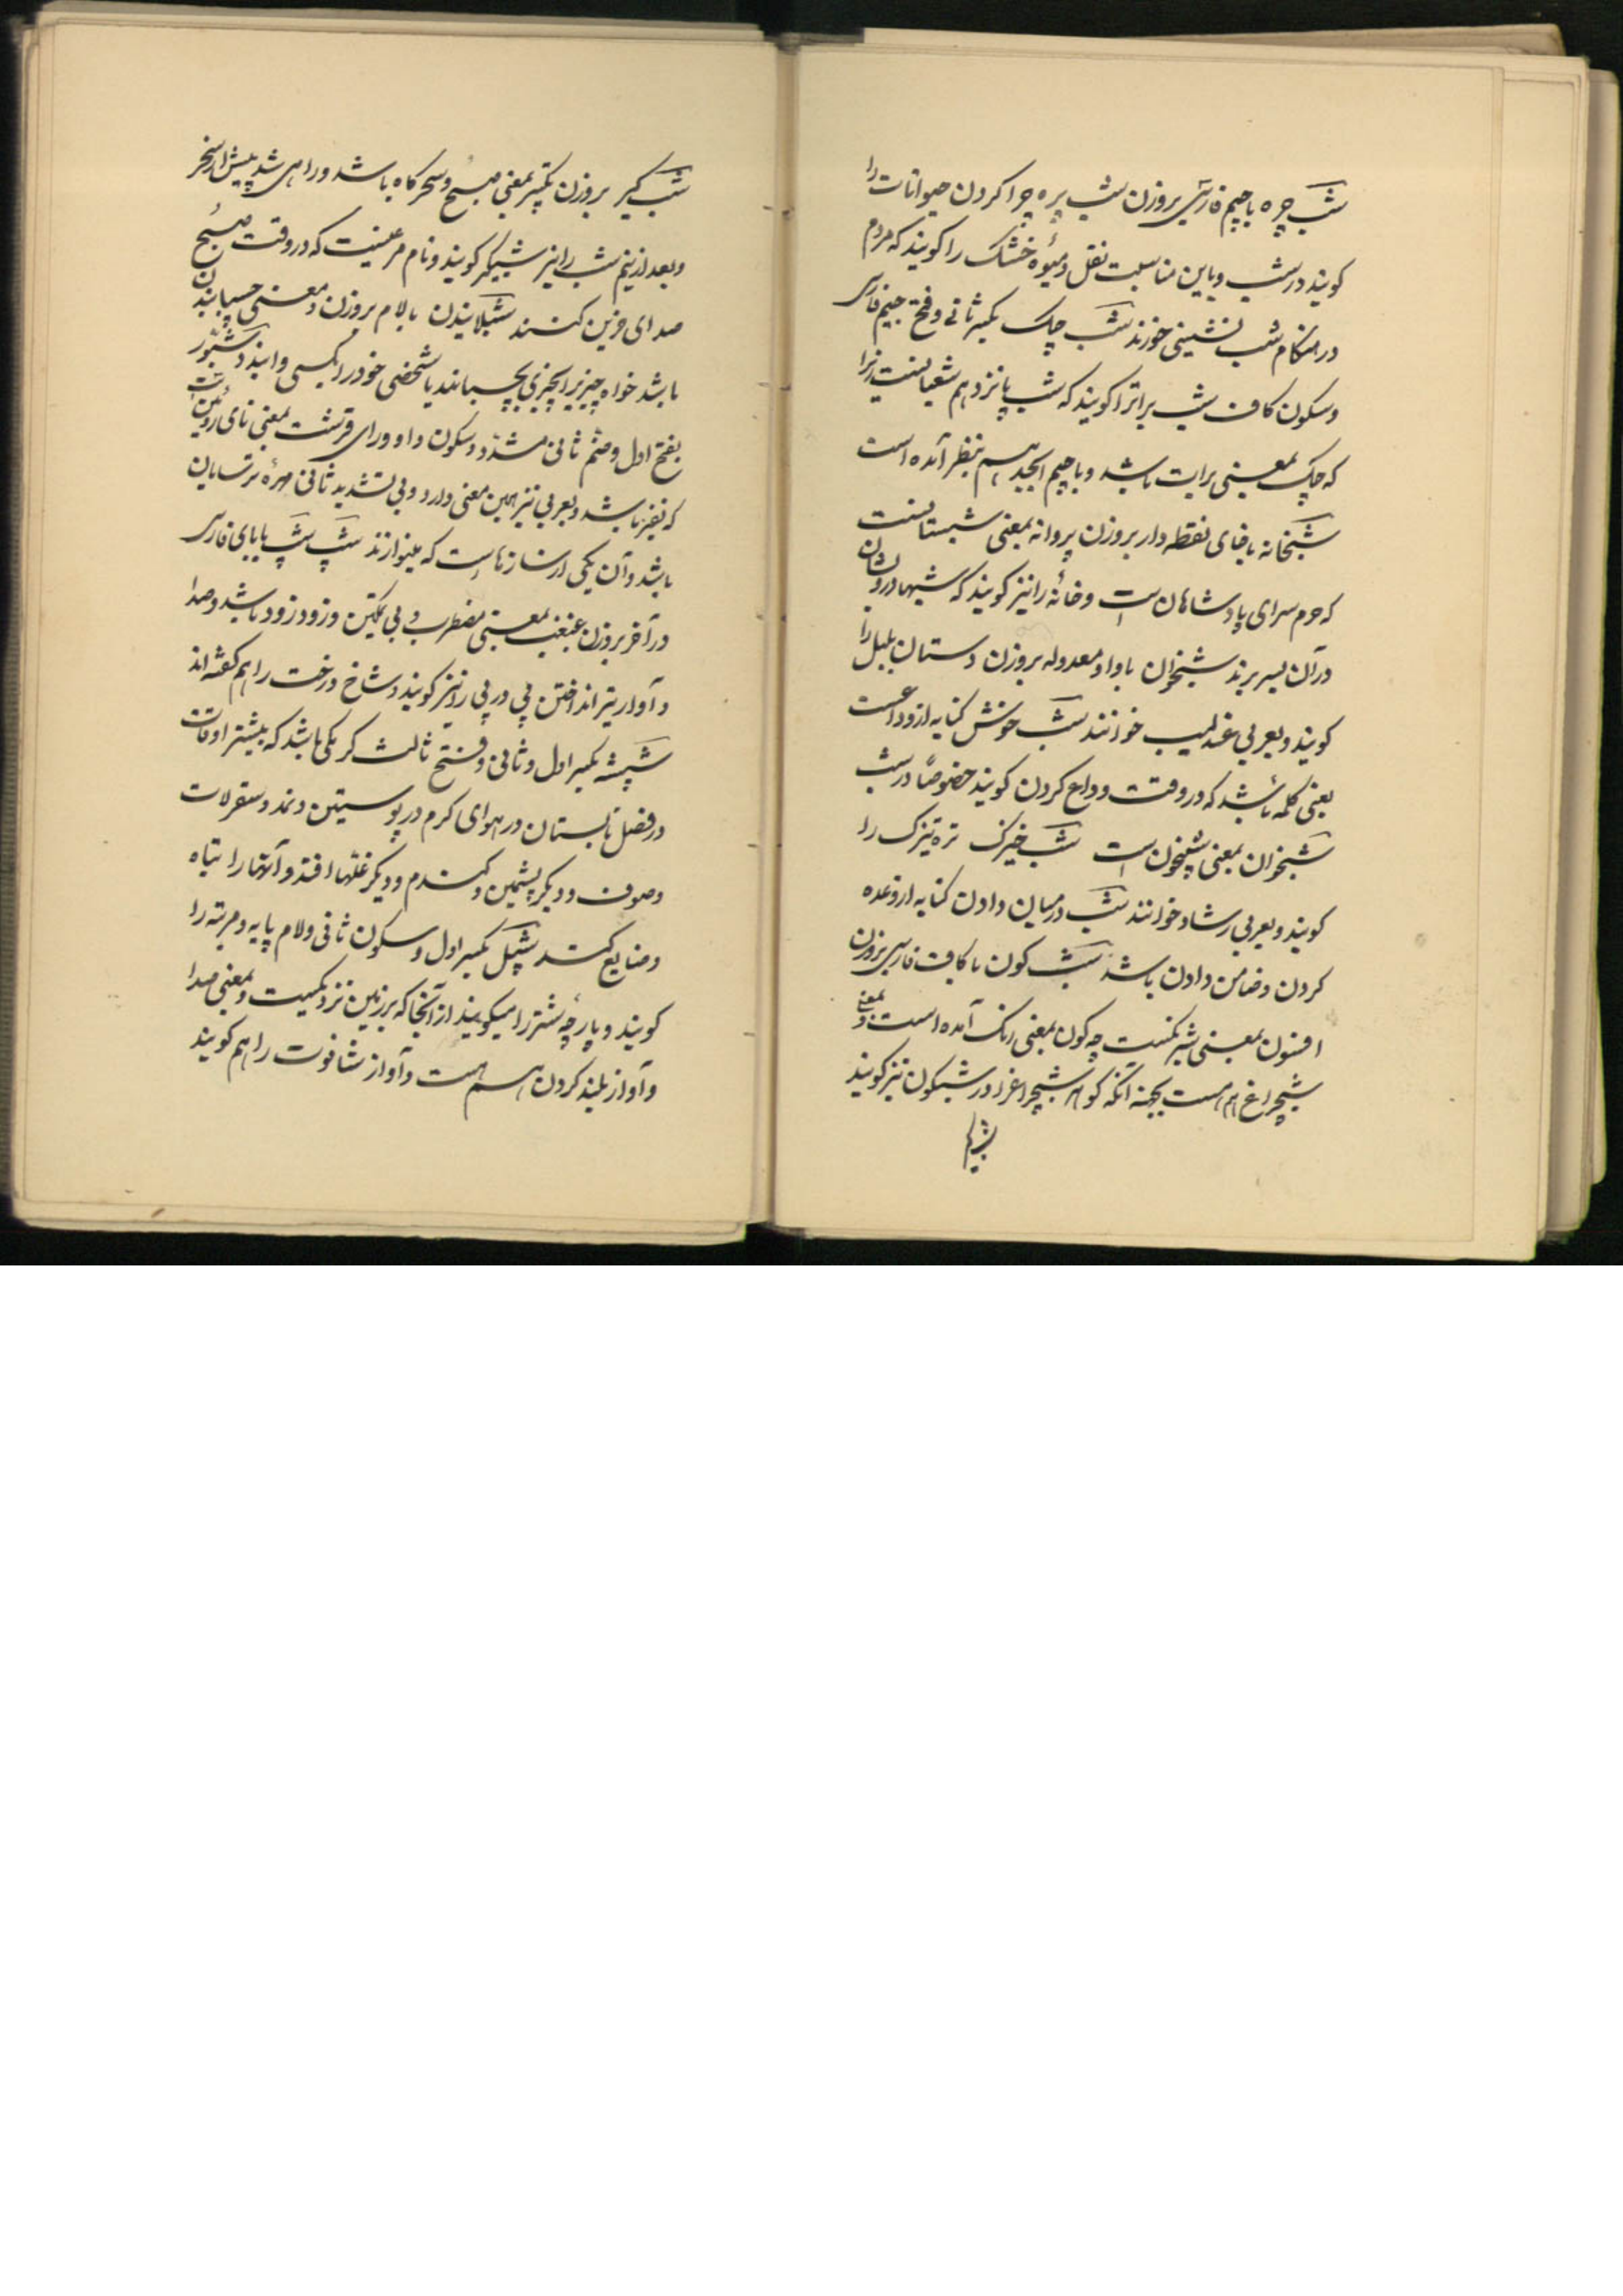 شب چره با جیم فارسی بروزن شب پره چرا کردن حیوانات را
کویند در شب و باین مناسبت نقل و میوه خشک را کویند که مردم
در هنکام شب نشینی خورند شب چک بکسر ثانی و فتح جیم فارسی
و سکون کاف شب براترا کویند که شب پانزدهم شعبانست
که چک بمعنی برات باشد و با جیم ابجد هم بنظر آمده است
شبخانه با خای نقطه دار بروزن پروانه بمعنی شبستانست
که حرم سرای پادشاهان است و خانه را نیز کویند که شبها درویشان
در آن بسر برند شبخوان با واو معدوله بروزن دستان بلبل را
کویند و بعربی عندلیب خوانند شب خوش کنایه از وداعست
یعنی کلمه باشد که در وقت وداع کردن کویند خصوصا در شب
شبخوان بمعنی شبیخون است شب خیزک تره تیزک را
کویند و بعربی رشاد خوانند شب درمیان دادن کنایه از وعده
کردن و ضامن دادن باشد شب کون با کاف فارسی بروزن
افسون بمعنی شبرنکست چه کون بمعنی رنک آمده است و بمعنی
شبچراغ هم هست بجهة آنکه کوهر شبچراغرا در شبکون نیز کویند
شب کیر بروزن تکبیر بمعنی صبح و سحرکاه باشد و راهی شدن پیش از سحر
و بعد از نیم شب را نیز شبکیر کویند و نام مرغیست که در وقت صبح
صدای حزین کند شبلانیدن بالام بروزن و معنی چسبانیدن
باشد خواه چیزیرا بچیزی بچسبانند یا شخصی خود را بکسی وابندد شبور
بفتح اول و ضم ثانی مشدد و سکون واو و رای قرشت بمعنی نای رویین است
که نفیر باشد و بعربی نیز همین معنی دارد و بی تشدید ثانی مهره ترسایان
باشد و آن یکی از سازهاست که مینوازند شپ شپ با بای فارسی
در آخر بروزن غبغب بمعنی مضطرب و بی تمکین و زود زود باشد و صدا
و آواز تیر انداختن پی در پی را نیز کویند و شاخ درخت را هم کفته اند
شپشه بکسر اول و ثانی و فتح ثالث کرمکی باشد که بیشتر اوقات
در فصل تابستان در هوای کرم در پوستین و نمد و سقرلات
و صوف و دیکر پشمین و کندم و دیکر غلها افتد و آنها را تباه
و ضایع کند شپل بکسر اول و سکون ثانی و لام پایه و مرتبه را
کویند و پارچه شتر را میکویند از آنجا که بر زمین نزدیکست و بمعنی صدا
و آواز بلند کردن هم هست و آواز شافوت را هم کویند